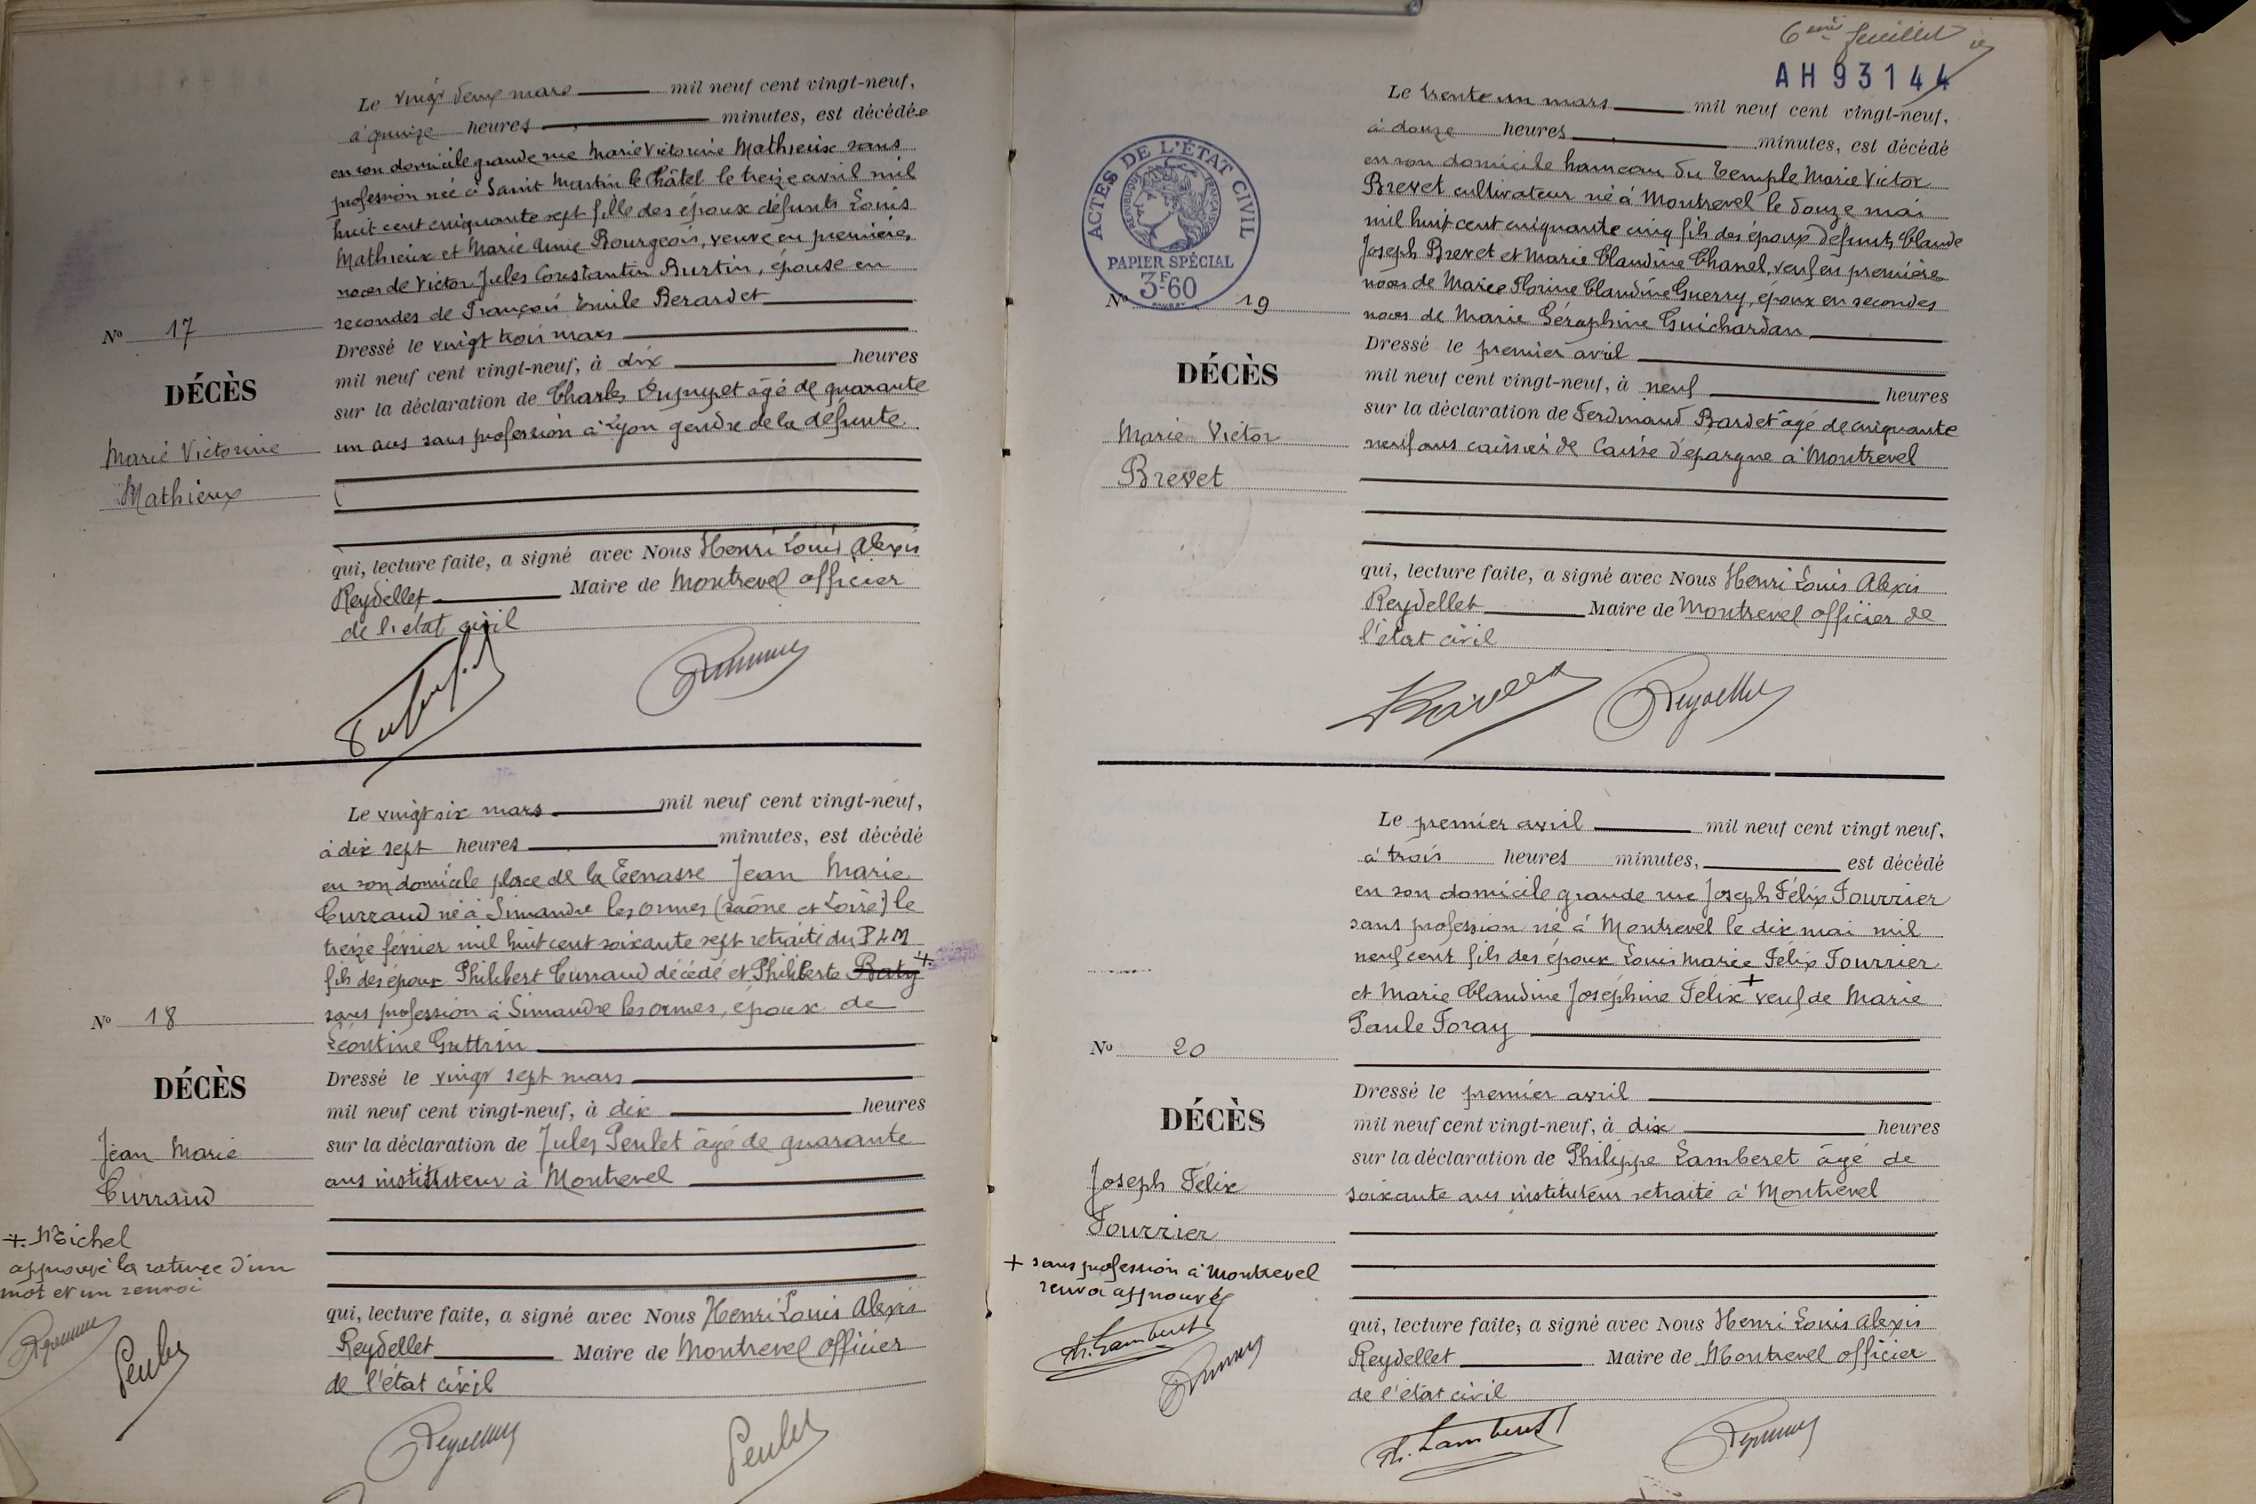 Le vingt deux mars mil neuf cent vingt-neuf,
à quinze heures minutes, est décédée
en son domicile grande rue Marie Victorine Mathieux sans
profession née à Saint Martin le Châtel le treize avril mil
huit cent cinquante sept fille des époux défunts Louis
Mathieux et Marie Anne Bourgeois, veuve en premières
noces de Victor Jules Constantin Burtin, épouse en
secondes de François Emile Berardet
Dressé le vingt trois mars
mil neuf cent vingt-neuf, à dix heures
sur la déclaration de Charles âgé de quarante
un ans sans profession à Lyon gendre de la défunte
qui, lecture faite, a signé avec Nous Henri Louis Alexis
Reydellet Maire de Montrevel officier
de l'état civil
No 17
DÉCÈS
Marie Victorine
Mathieux
Le vingt six mars mil neuf cent vingt-neuf,
à dix sept heures minutes, est décédé
en son domicile place de la Jean Marie
Curraud né à Simandre les ormes (Saône et Loire) le
treize février mil huit cent soixante sept retraité du PLM
fils des époux Philibert Curraud décédé et Philiberte Baty +
sans profession à Simandre les ormes, époux de
Léontine Guttrin
Dressé le vingt sept mars
mil neuf cent vingt-neuf, à dix heures
sur la déclaration de Jules Peulet âgé de quarante
ans instituteur à Montrevel
qui, lecture faite, a signé avec Nous Henri Louis Alexis
Reydellet Maire de Montrevel officier
de l'état civil
Reydellet Peulet
No 18
DÉCÈS
Jean Marie
Curraud
+. Michel
approuvé la rature d'un
mot et un renvoi
Reydellet
Peulet
6eme feuillet
AH93144
ACTES DE L'ÉTAT CIVIL
RÉPUBLIQUE FRANÇAISE
PAPIER SPÉCIAL
3F60
Le trente un mars mil neuf cent vingt-neuf,
à douze heures minutes, est décédé
en son domicile hameau du Temple Marie Victor
Brevet cultivateur né à Montrevel le douze mai
mil huit cent cinquante cinq fils des époux défunts Claude
Joseph Brevet et Marie Claudine Chanel, veuf en premières
noces de Marie Florine Claudine Guerry, époux en secondes
noces de Marie Séraphine Guichardan
Dressé le premier avril
mil neuf cent vingt-neuf, à neuf heures
sur la déclaration de Ferdinand Bardet âgé de cinquante
neuf ans caissier de Caisse d'épargne à Montrevel
qui, lecture faite, a signé avec Nous Henri Louis Alexis
Reydellet Maire de Montrevel officier de
l'état civil
Reydellet
No 19
DÉCÈS
Marie Victor
Brevet
Le premier avril mil neuf cent vingt neuf,
à trois heures minutes, est décédé
en son domicile grande rue Joseph Félix Fourrier
sans profession né à Montrevel le dix mai mil
neuf cent fils des époux Louis Marie Félix Fourrier
et Marie Claudine Joséphine Félix + veuf de Marie
Paule Foray
Dressé le premier avril
mil neuf cent vingt-neuf, à dix heures
sur la déclaration de Philippe Lamberet âgé de
soixante ans instituteur retraité à Montrevel
qui, lecture faite, a signé avec Nous Henri Louis Alexis
Reydellet Maire de Montrevel officier
de l'état civil
Ph. Lamberet Reydellet
No 20
DÉCÈS
Joseph Félix
Fourrier
+ sans profession à Montrevel
renvoi approuvé
Ph. Lamberet
Reydellet